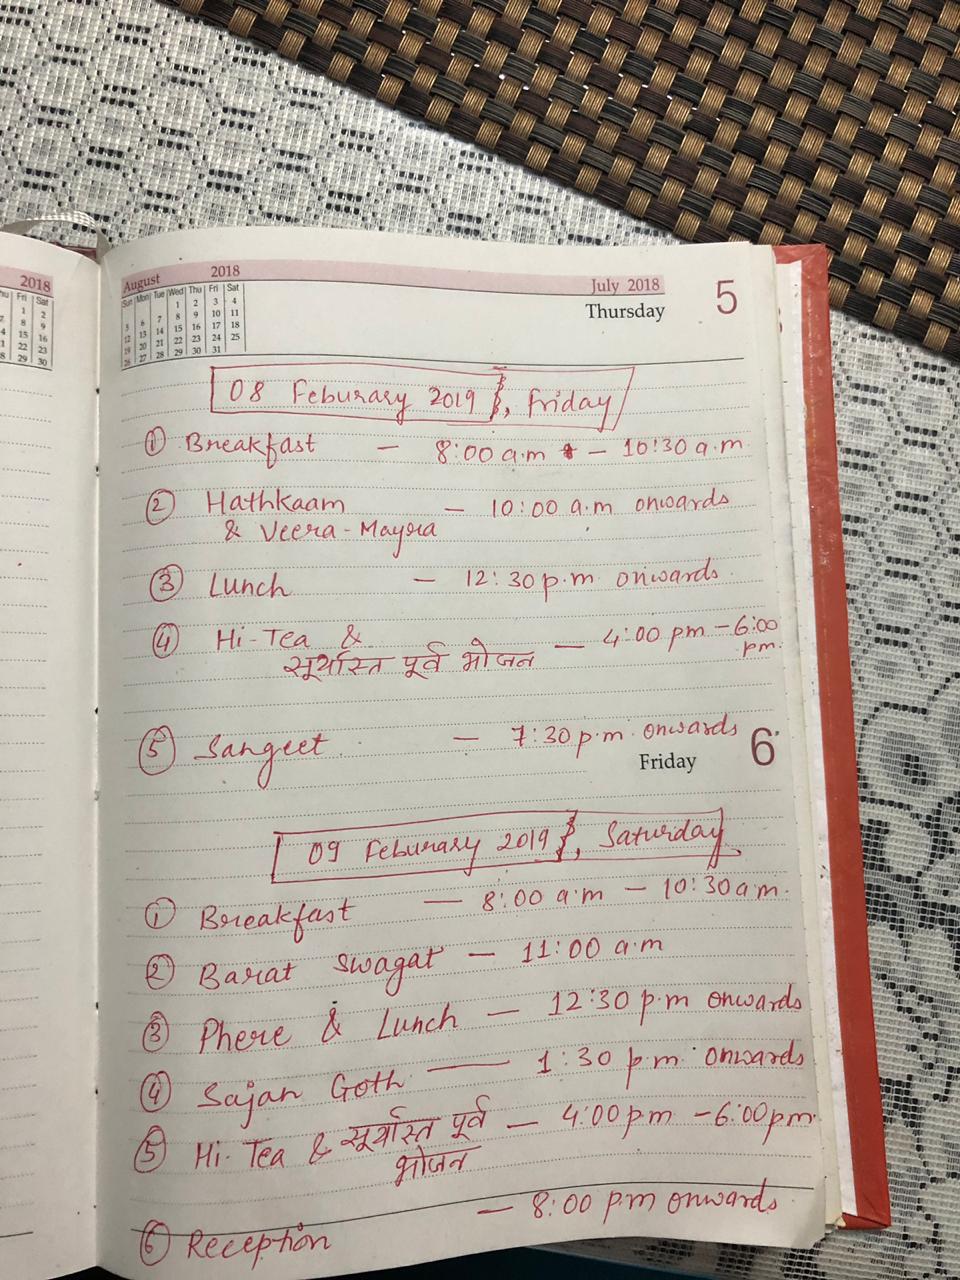 2018
Fri Sat
1 2
8 9
15 16
22 23
29 30
August 2018
Sun Mon Tue Wed Thu Fri Sat
1 2 3 4
5 6 7 8 9 10 11
12 13 14 15 16 17 18
19 20 21 22 23 24 25
26 27 28 29 30 31
July 2018
Thursday
5
08 Feburary 2019, Friday
① Breakfast — 8:00 a.m — 10:30 a.m
② Hathkaam — 10:00 a.m onwards
& Veera-Mayra
③ Lunch — 12:30 p.m. onwards
④ Hi-Tea & — 4:00 pm – 6:00
सूर्यास्त पूर्व भोजन pm.
⑤ Sangeet — 7:30 p.m. onwards
Friday
6
09 Feburary 2019, Saturday
① Breakfast — 8:00 a.m — 10:30 a.m.
② Barat Swagat — 11:00 a.m
③ Phere & Lunch — 12:30 p.m onwards
④ Sajan Goth — 1:30 p.m. onwards
⑤ Hi-Tea & सूर्यास्त पूर्व — 4:00 pm – 6:00 pm.
भोजन
⑥ Reception — 8:00 p.m onwards